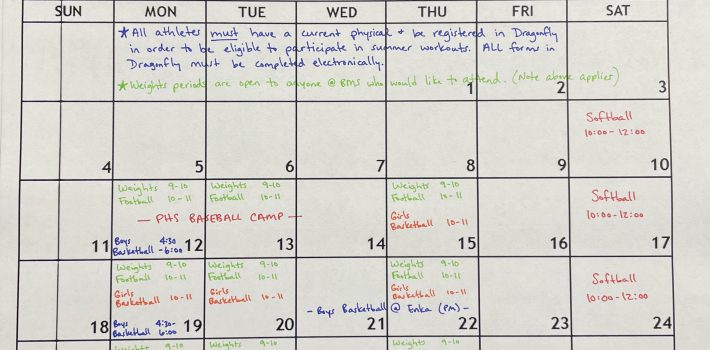 SUN MON TUE WED THU FRI SAT
★ All athletes must have a current physical + be registered in Dragonfly
in order to be eligible to participate in summer workouts. ALL forms in
Dragonfly must be completed electronically.
★ Weights periods are open to anyone @ BMS who would like to attend. (Note above applies)
1 2 3
Softball
10:00 - 12:00
4 5 6 7 8 9 10
Weights 9-10 Weights 9-10 Weights 9-10
Football 10-11 Football 10-11 Football 10-11
Softball
10:00 - 12:00
— PHS BASEBALL CAMP —
Girls
Basketball 10-11
Boys 4:30
Basketball - 6:00
11 12 13 14 15 16 17
Weights 9-10 Weights 9-10 Weights 9-10
Football 10-11 Football 10-11 Football 10-11
Girls Girls Girls
Basketball 10-11 Basketball 10-11 Basketball 10-11
Softball
10:00 - 12:00
- Boys Basketball @ Enka (PM) -
Boys 4:30-
Basketball 6:00
18 19 20 21 22 23 24
Weights 9-10 Weights 9-10